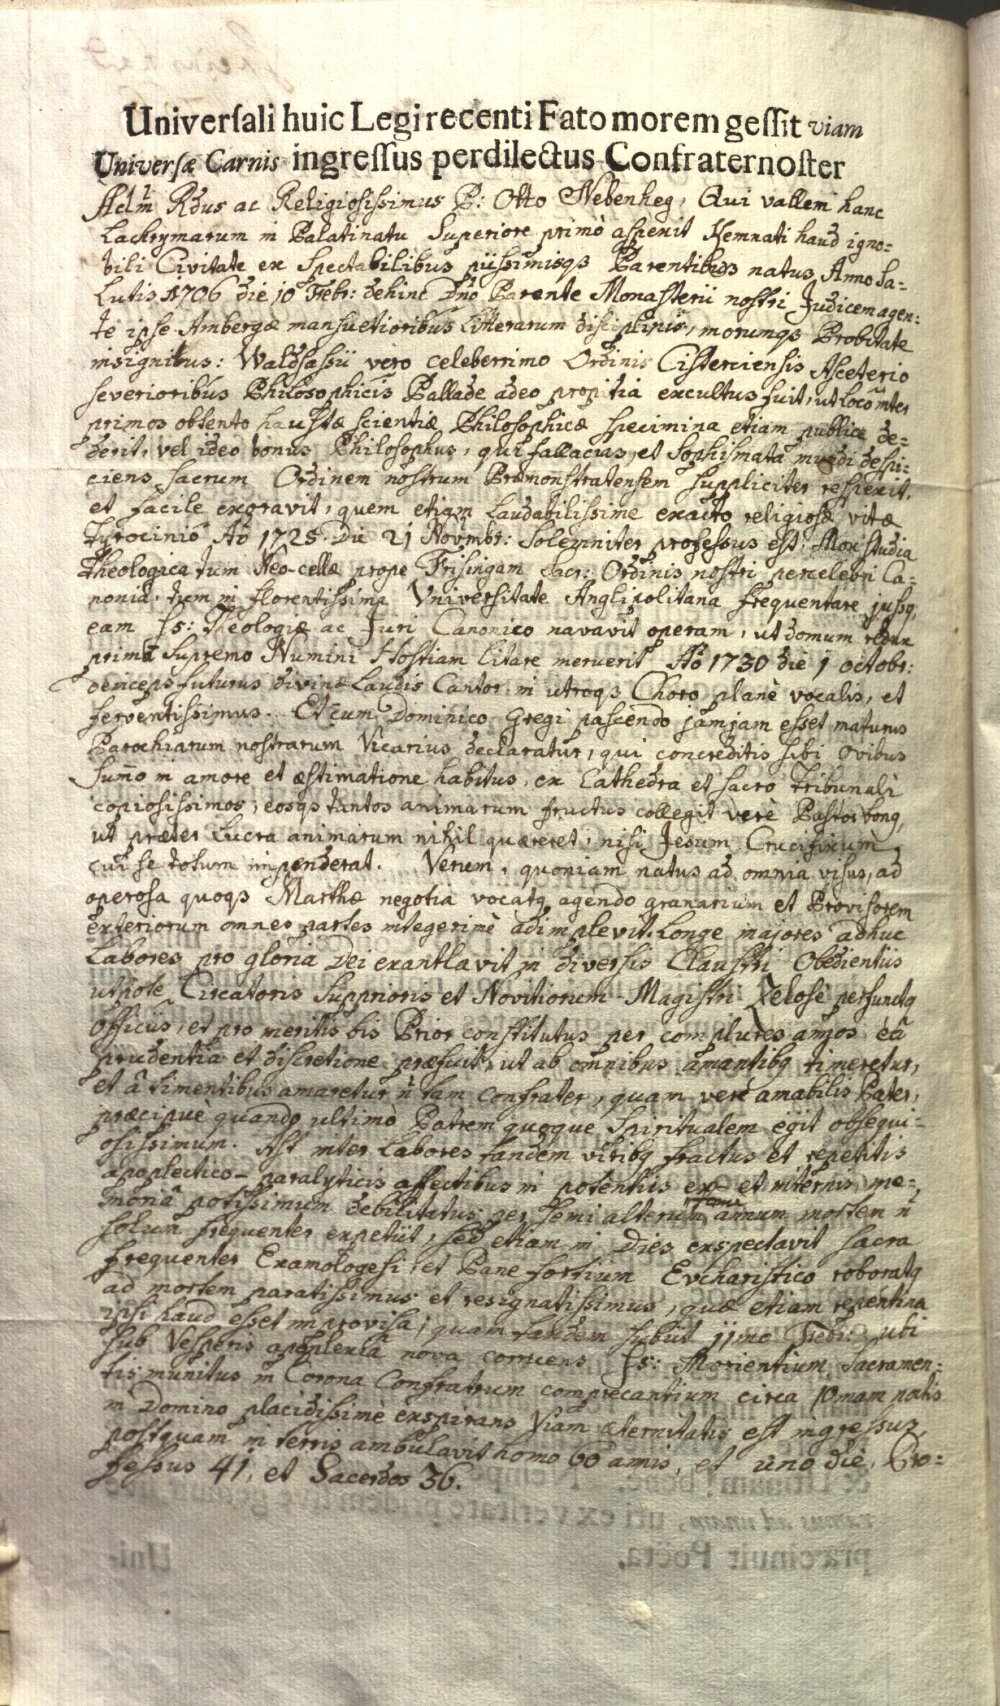 Universali huic Legi recenti Fato morem gessit viam
Universæ Carnis ingressus perdilectus Confrater noster
Adm. Rdus ac Religiosissimus P: Otto Nebenheg, Qui vallem hanc
Lachrymarum in Palatinatu Superiore primò aspexit Kemnati haud igno=
bili Civitate ex Spectabilibus piissimisqs Parentibus natus, Anno Sa=
lutis 1706 die 10 Febr: dehinc Dno Parente Monasterii nostri Judicem agen=
te ipse Ambergæ mansuetioribus Litterarum disciplinis, morumqs Probitate
insignibus: Waldsassii vero celeberrimo Ordinis Cisterciensis Asceterio
severioribus Philosophicis Pallade adeo propitia excultus fuit, ut loco inter
primos obtento haustæ scientiæ Philosophicæ specimina etiam publice de=
derit, vel ideo bonus Philosophus, qui fallacias, et Sophismata mundi despi=
ciens Sacrum Ordinem nostrum Præmonstratensem suppliciter respexit,
et facile exoravit, quem etiam Laudabilissime exacto religiosæ vitæ
Tyrocinio Aõ 1725 Die 21 Novembr: Solemniter professus est, Mox studia
Theologica tum Neo-cellæ prope Frisingam Sacr: Ordinis nostri percelebri Ca=
nonia, tum in florentissima Universitate Anglipolitana frequentare jussq
eam Ss: Theologiæ ac Juri Canonico navavit operam, ut domum redux
primã Supremo Numini Hostiam litare meruerit Aõ 1730 die 1 octobr:
deinceps futurus divinæ Laudis Cantor in utroqs Choro planè vocalis, et
ferventissimus. Et cum Dominico Gregi pascendo jamjam esset maturus
Parochiarum nostrarum Vicarius declaratur, qui concreditis sibi ovibus
Sumõ in amore et æstimatione habitus, ex Cathedra et sacro Tribunali
copiosissimos, eosqs tantos animarum fructus collegit verè Pastor bonq,
ut præter Lucra animarum nihil quæreret, nisi Jesum Crucifixum,
cui se totum impenderat. Verum, quoniam natus ad omnia visus, ad
operosa quoqs Marthæ negotia vocatq agendo granarium et Provisorem
exteriorum omnes partes integerimè adimplevit. Longe majores adhuc
Labores pro gloria Dei exantlavit in diversis Claustri Obedientiis
utpote Circatoris Supprioris et Novitiorum Magistri Zelosè perfunctq
officiis, et pro meritis bis Prior constitutus per complures annos eã
prudentiã et discretione præfuit, ut ab omnibus amantibq timeretur,
et â timentibus amaretur ñ tam Confrater, quam verè amabilis Pater,
præcipue quando ultimò Patrem quoque Spiritualem egit obsequi=
osissimum. Ast inter Labores tandem viribq fractus et repetitis
apoplectico-paralyticis affectibus in potentiis ex- et internis, me=
moriâ potissimum debilitatus per semi alterum annum mortem ñ
solum frequenter expetiit, sed etiam in Dies exspectavit sacra
frequenter Exomologesi et Pane fortium Evcharistico roboratq
ad mortem paratissimus et resignatissimus, quæ etiam repentina
ipsi haud esset improvisa, quam tandem subiit 11mo Febr: uti
sub Vesperis apoplexiã nova corripiens Ss: Morientium Sacramen=
tis munitus in Corona Confratrum comprecantium circa 10mam noctis
in Domino placidissimè exspirans Viam æternitatis est ingressus,
postquam in terris ambulavit homo 60 annis, et uno die, Pro=
fessus 41, et Sacerdos 36.